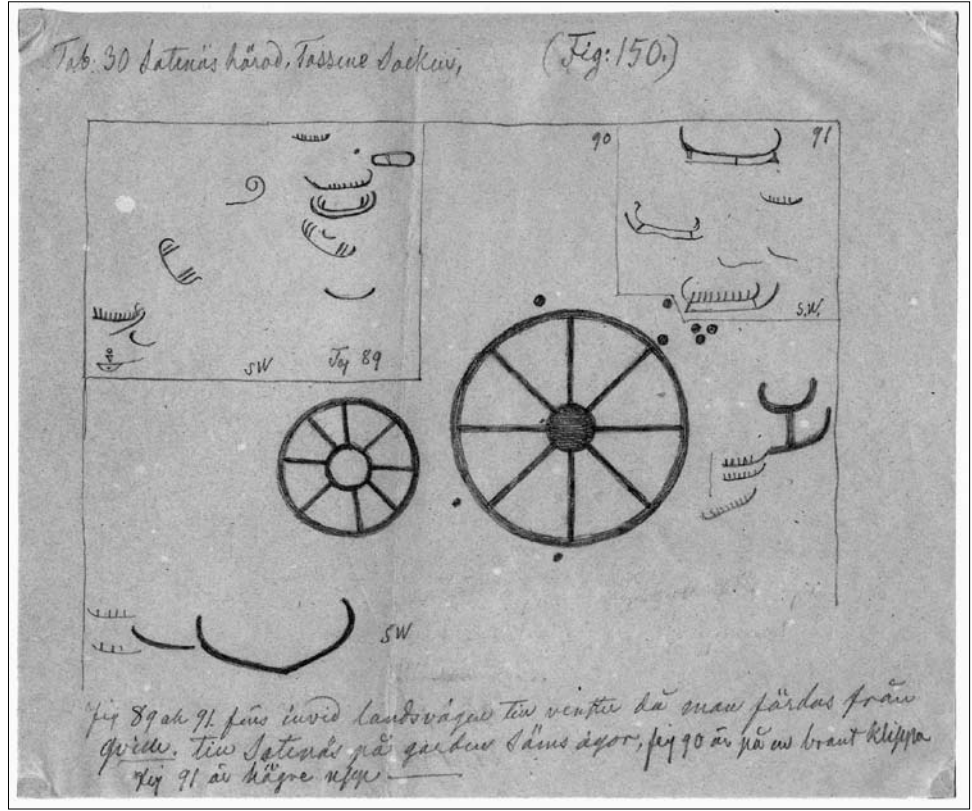 Tab. 30 Sotenäs härad, Tossene Socken,
(Fig: 150.)
90
91
S.W.
SW
Fig 89
SW
Fig 89 och 91 fins invid landsvägen till venster då man färdas från
Qville. till Sotenäs på gården Säms ägor, fig 90 är på en brant klippa
Fig 91 är högre upp